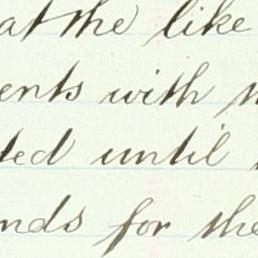 at the like
ents with
ted until
nds for the